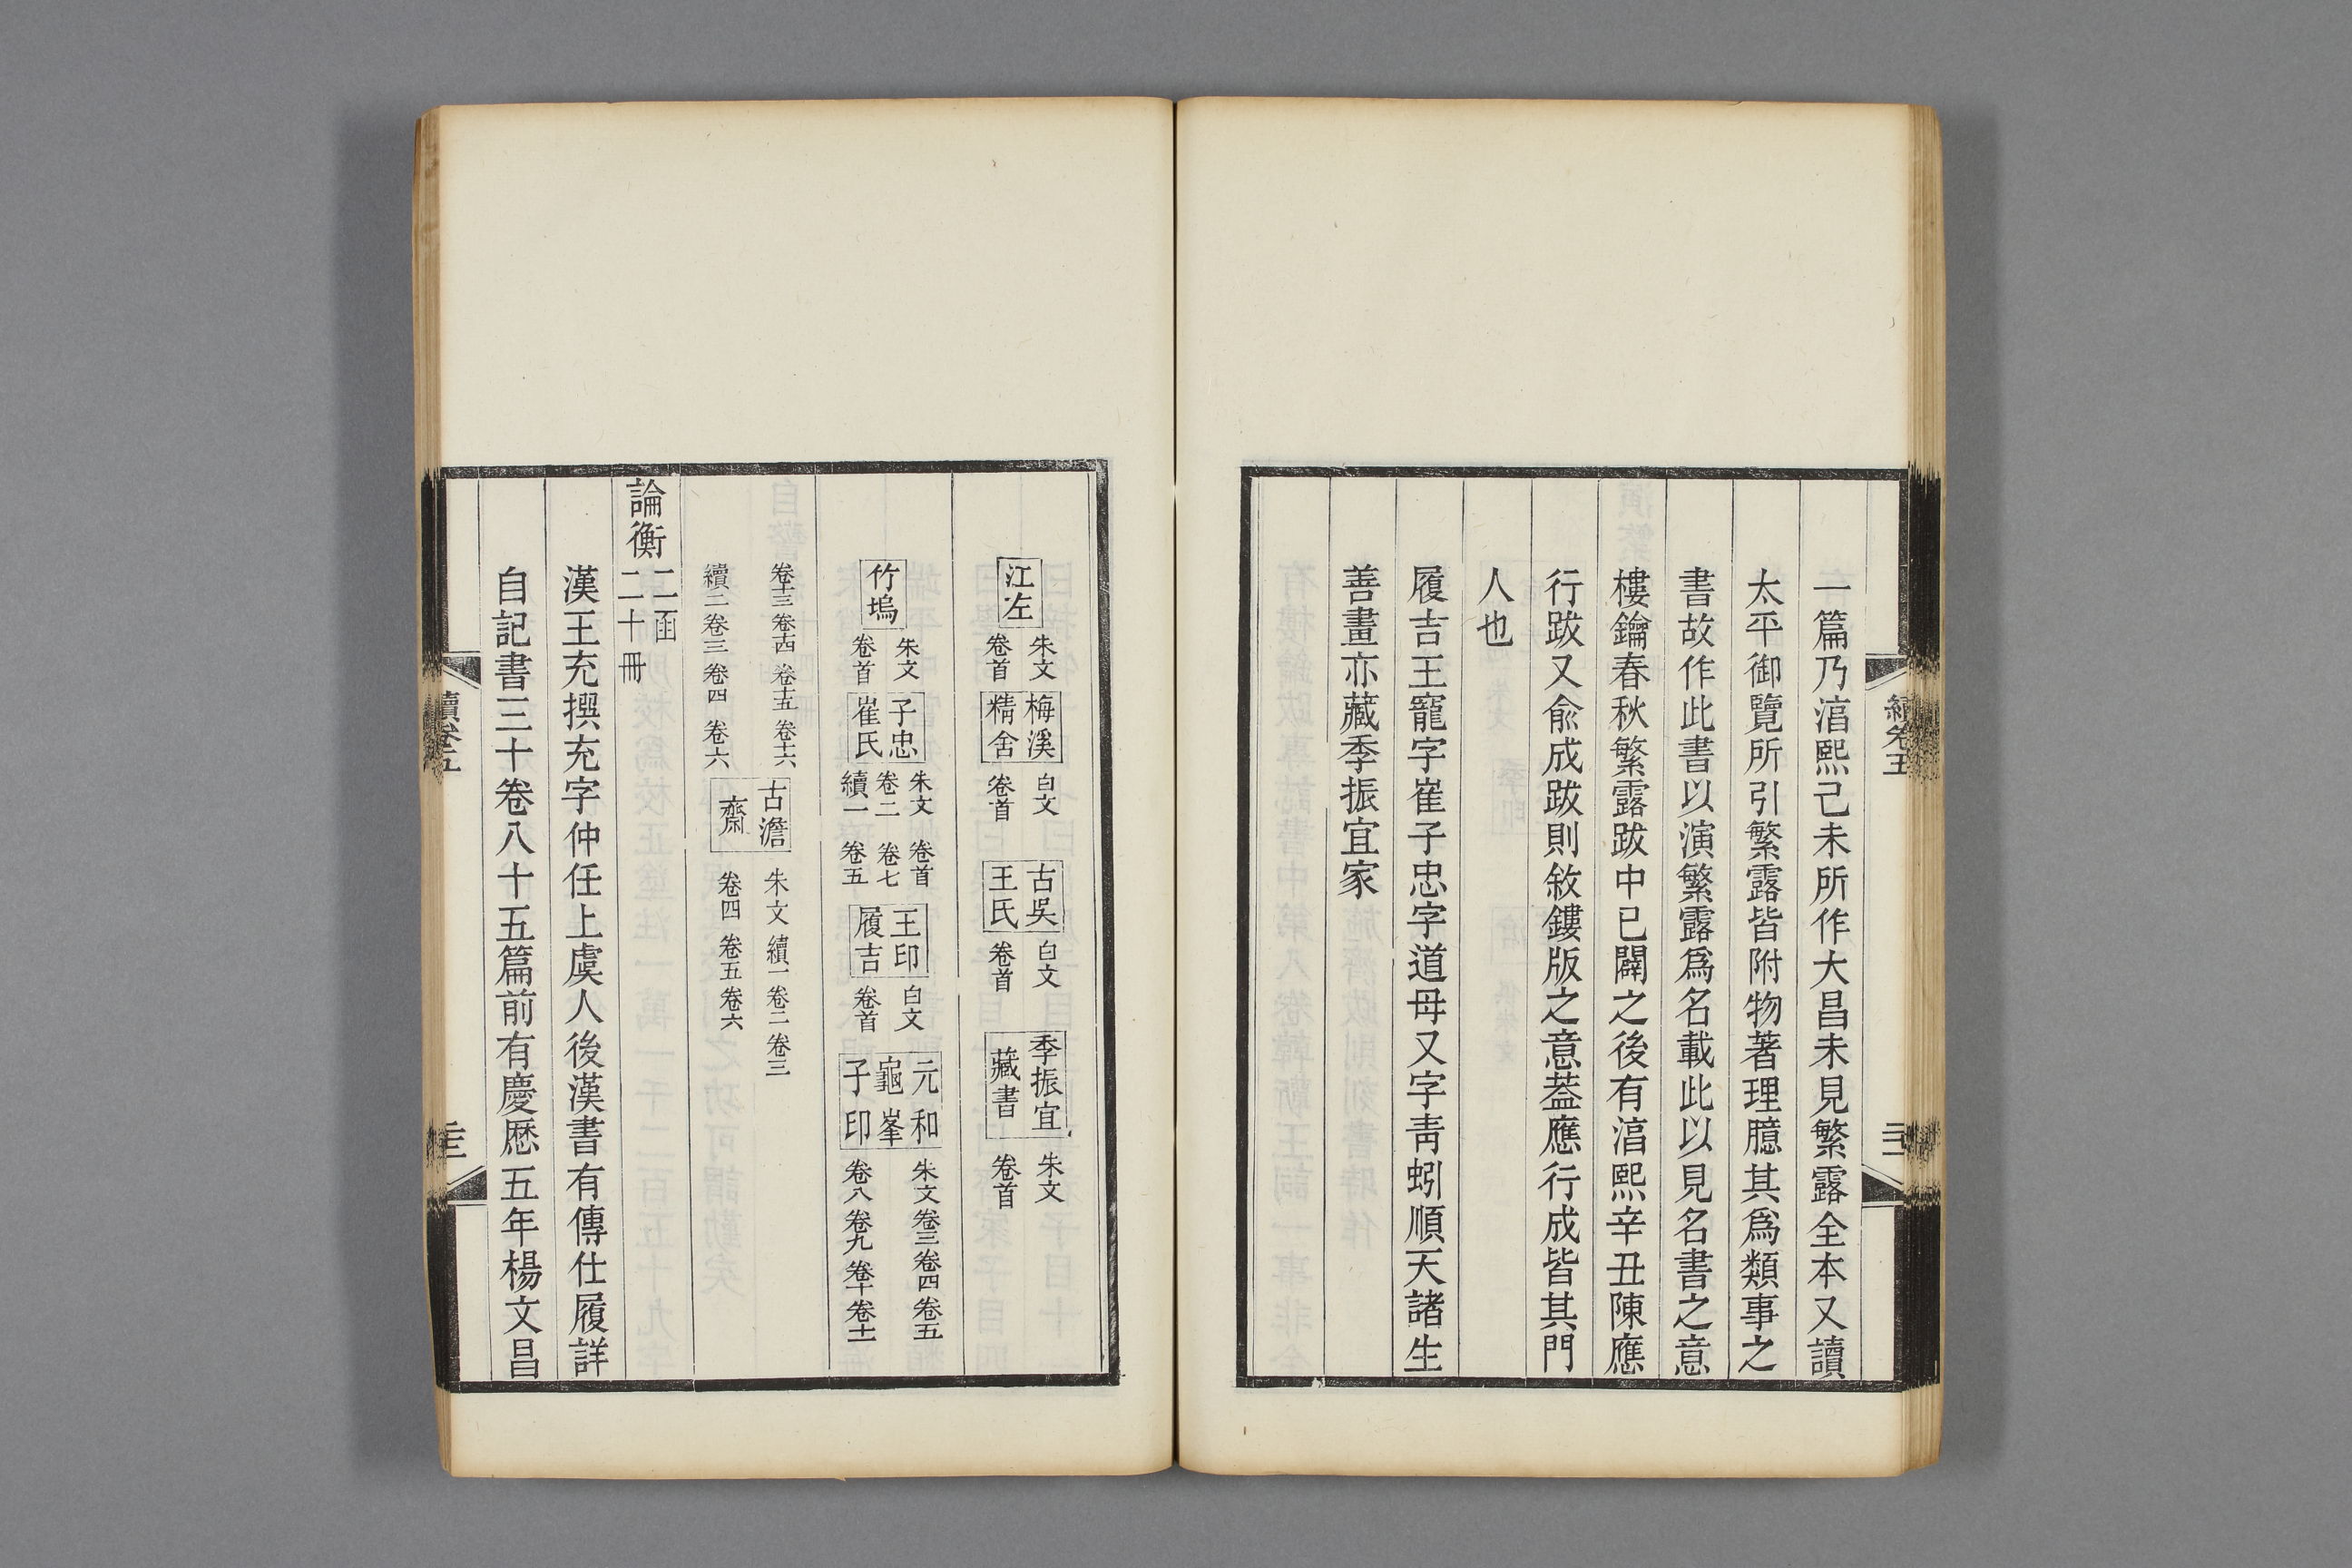 一篇乃湻熙己未所作大昌未見繁露全本又讀
太平御覽所引繁露皆附物著理臆其為類事之
書故作此書以演繁露為名載此以見名書之意
樓鑰春秋繁露跋中已闢之後有湻熙辛丑陳應
行跋又俞成跋則敘鏤版之意葢應行成皆其門
人也
履吉王寵字崔子忠字道毋又字靑蚓順天諸生
善畫亦藏季振宜家
江左
朱文
卷首
梅溪
精舍
白文
卷首
古吳
王氏
白文
卷首
季振宜
藏書
朱文
卷首
竹塢
朱文
卷首
子忠
崔氏
朱文 卷首
卷二 卷七
續一 卷五
王印
履吉
白文
卷首
元和
龜峯
子印
朱文 卷三 卷四 卷五
卷八 卷九 卷十 卷十一
卷十三 卷十四 卷十五 卷十六
續二 卷三 卷四 卷六
古澹
齋
朱文 續一 卷二 卷三
卷四 卷五 卷六
論衡
二函
二十冊
漢王充撰充字仲任上虞人後漢書有傳仕履詳
自記書三十卷八十五篇前有慶歷五年楊文昌
續卷五